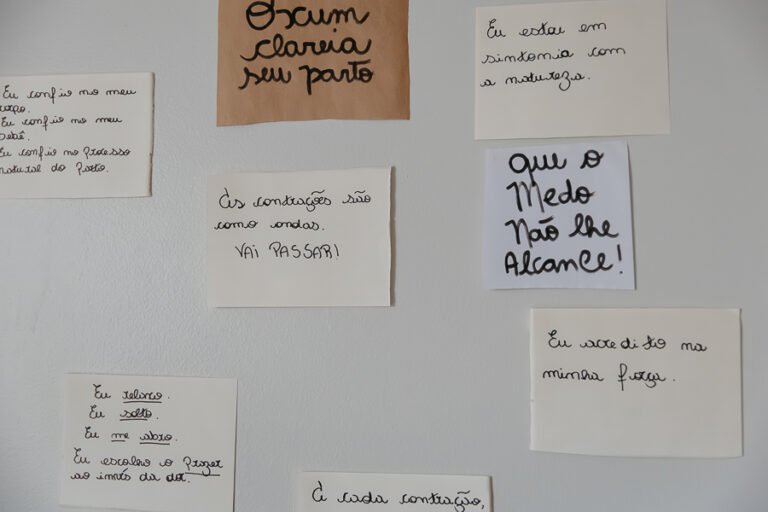 Oxum
clareia
seu parto
Eu estou em
sintonia com
a natureza.
Eu confio no meu
corpo.
Eu confio no meu
bebê.
Eu confio no processo
natural do parto.
As contrações são
como ondas.
VAI PASSAR!
que o
Medo
Não lhe
Alcance!
Eu acredito na
minha força.
Eu relaxo.
Eu solto.
Eu me abro.
Eu escolho o prazer
ao invés da dor.
A cada contração,